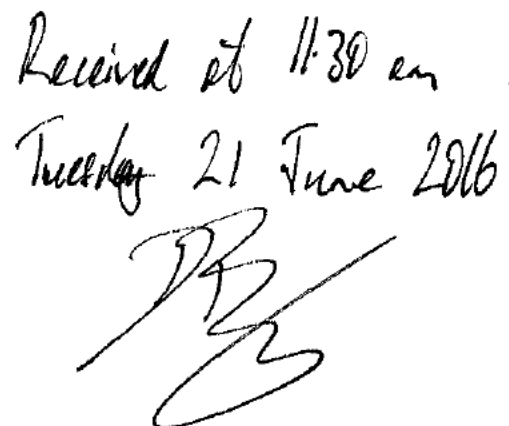 Received at 11.30 am
Tuesday 21 June 2016